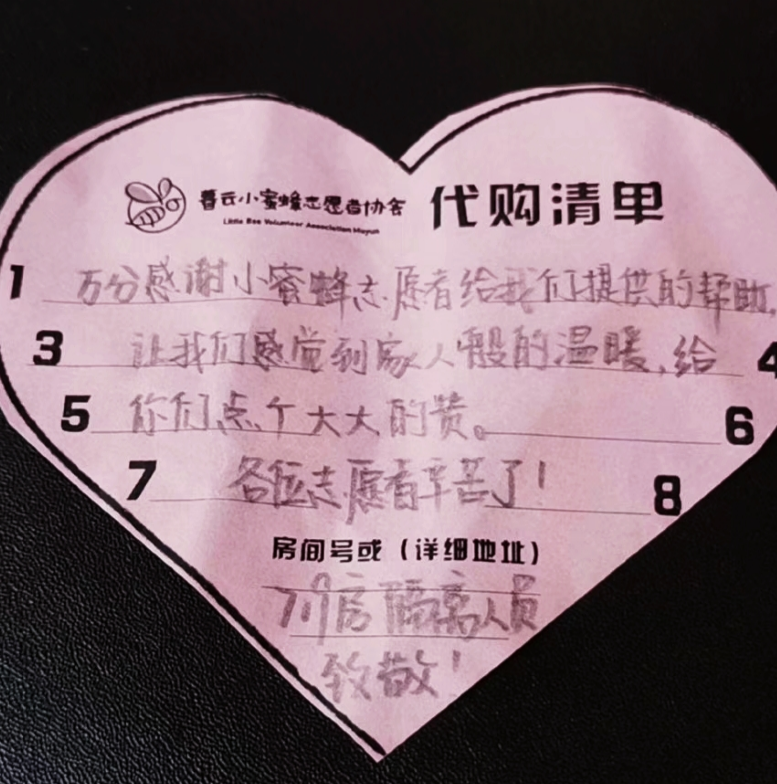 暮云小蜜蜂志愿者协会 代购清单
Little Bee Volunteer Association Muyun
1 万分感谢小蜜蜂志愿者给我们提供的帮助,
3 让我们感觉到家人般的温暖,给 4
5 你们点个大大的赞。 6
7 各位志愿者辛苦了! 8
房间号或(详细地址)
房隔离人员
致敬!